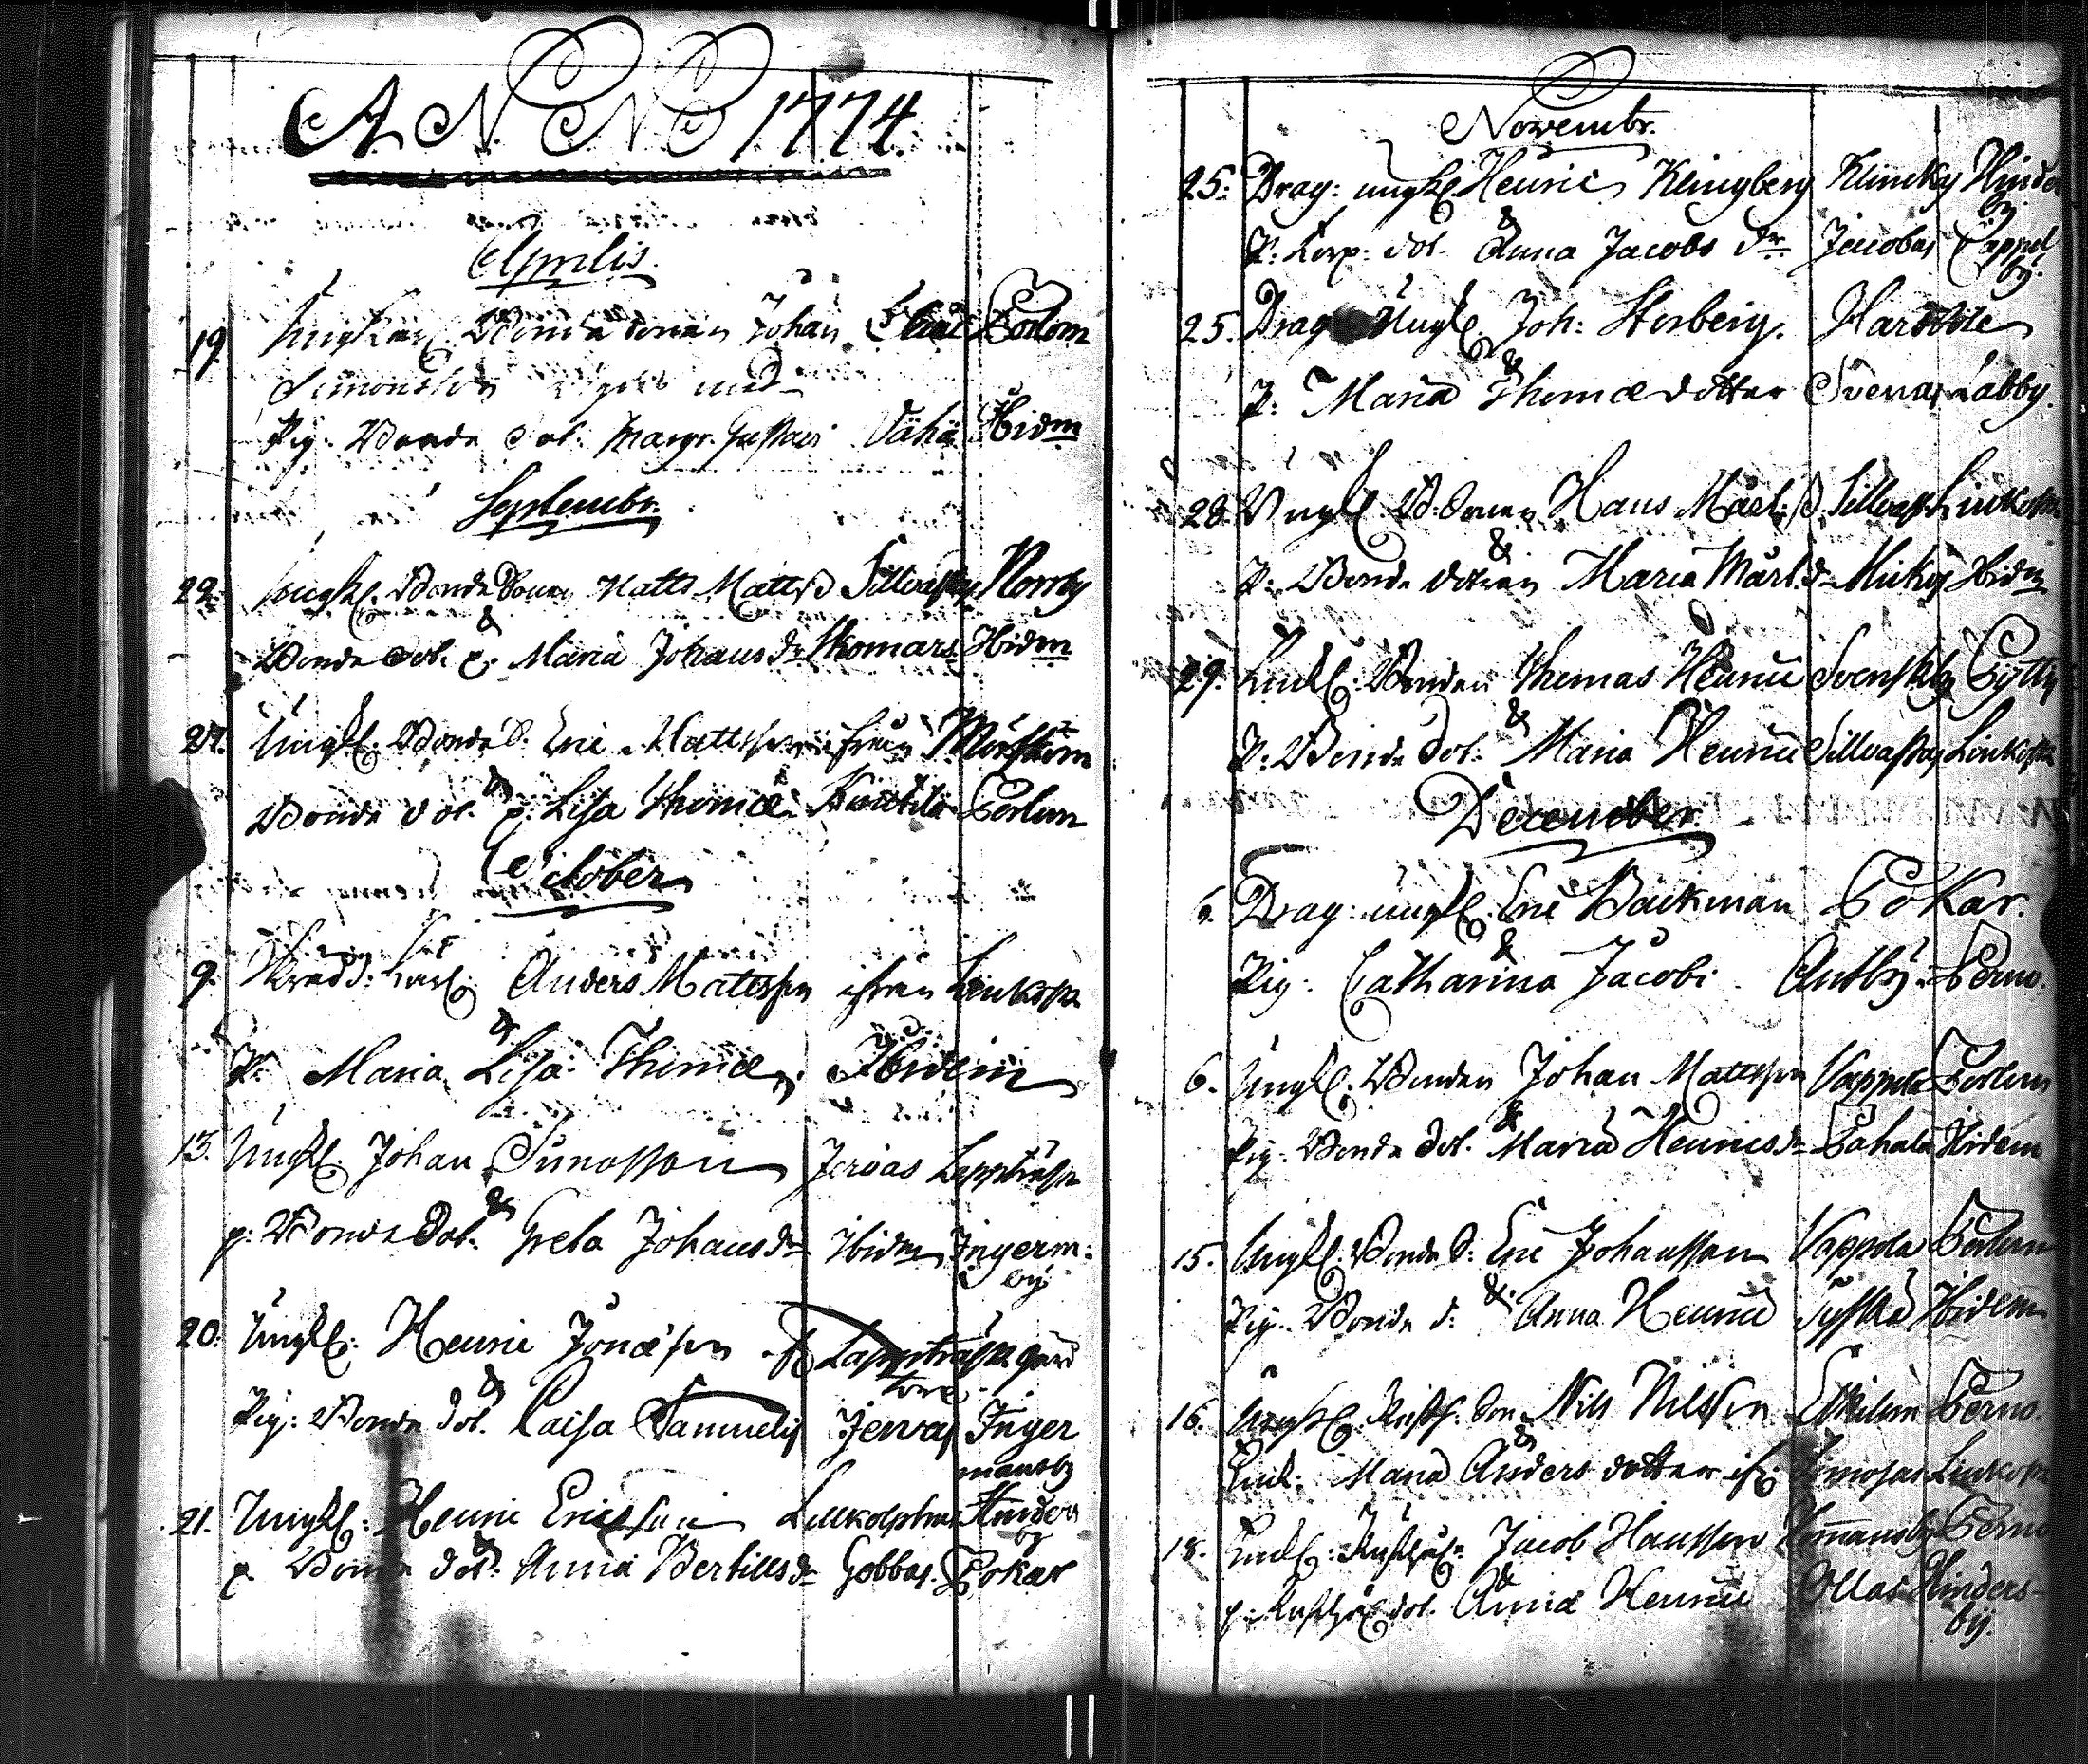 ANNO 1774.
Aprilis.
19. Ungkarl. Bonde Sonen Johan Porlom
Simonsson
Pig. Bonde dot. Margr. Gustavi Vähä Ibidm
Septembr.
22. Ungkl. Bonde Sonen Matts Mattss Sillvastay Norrby
&
Bonde dot. p. Maria Johans dr Skomars Ibidm
27. Ungkl. Bonde S. Eric Mattsson ifrån Mörskom
&
Bonde dot. p. Lisa Thomæ Porlom
October
9. Anders Mattsson ifrån Linkoski
&
P. Maria Lisa Thomæ Ibidem
13. Ungkl. Johan Simosson Jervas Lappträsk
&
p: Bonde Dot. Greta Johans dr Ibidm Ingerm:
by
20. Ungkl: Henric Jonæson Lappträsk gård
&
Pig: Bonde dot. Caisa Samuelis Jervas Inger
mansby
21. Ungkl: Henric Ericsson Hinders
by
&
p. Bonde dot: Anna Bertills dr Gobbas Pokar
Novembr.
25. Drag: ungkl Henric Klingberg Klincky Hinders
by
&
P. Korp: dot. Anna Jacobs dr Jacobas Cappel
by.
25. Drag Ungkl. Joh: Storberg. Hardble
&
P: Maria Thomæ dotter Svenas Labby.
28. Ungkl. B. Sonen Hans Mårt. ss. Sillvast Linkoski
&
P: Bonde dotren Maria Mårt. dr Mickos Ibidm
29. Enkl. Bonden Thomas Henrici Svenskby Pytty
&
P. Bonde dot: Maria Henrici Sillvastay Linkoski
December.
6. Drag: ungkl. Eric Backman Pokar.
&
Pig: Catharina Jacobi Antby Perno.
6. Ungkl. Bonden Johan Mattsson Vappula Porlom
&
Pig. Bonde dot. Maria Henrics dr Pahala Ibidem
15. Ungkl. Bonde S: Eric Johansson Vappola Porlom
&
Pig. Bonde d: Anna Henrici Ibidem
16. Ungkl. Rusth. Son Nils Nilsson Perno.
&
Enk: Maria Anders dotter ifr: Simosas Linkoski
18. Enkl: Rusthål: Jacob Hansson Perno
&
p. Rusthål. dot. Anna Henrici Ollas Hinders-
by.